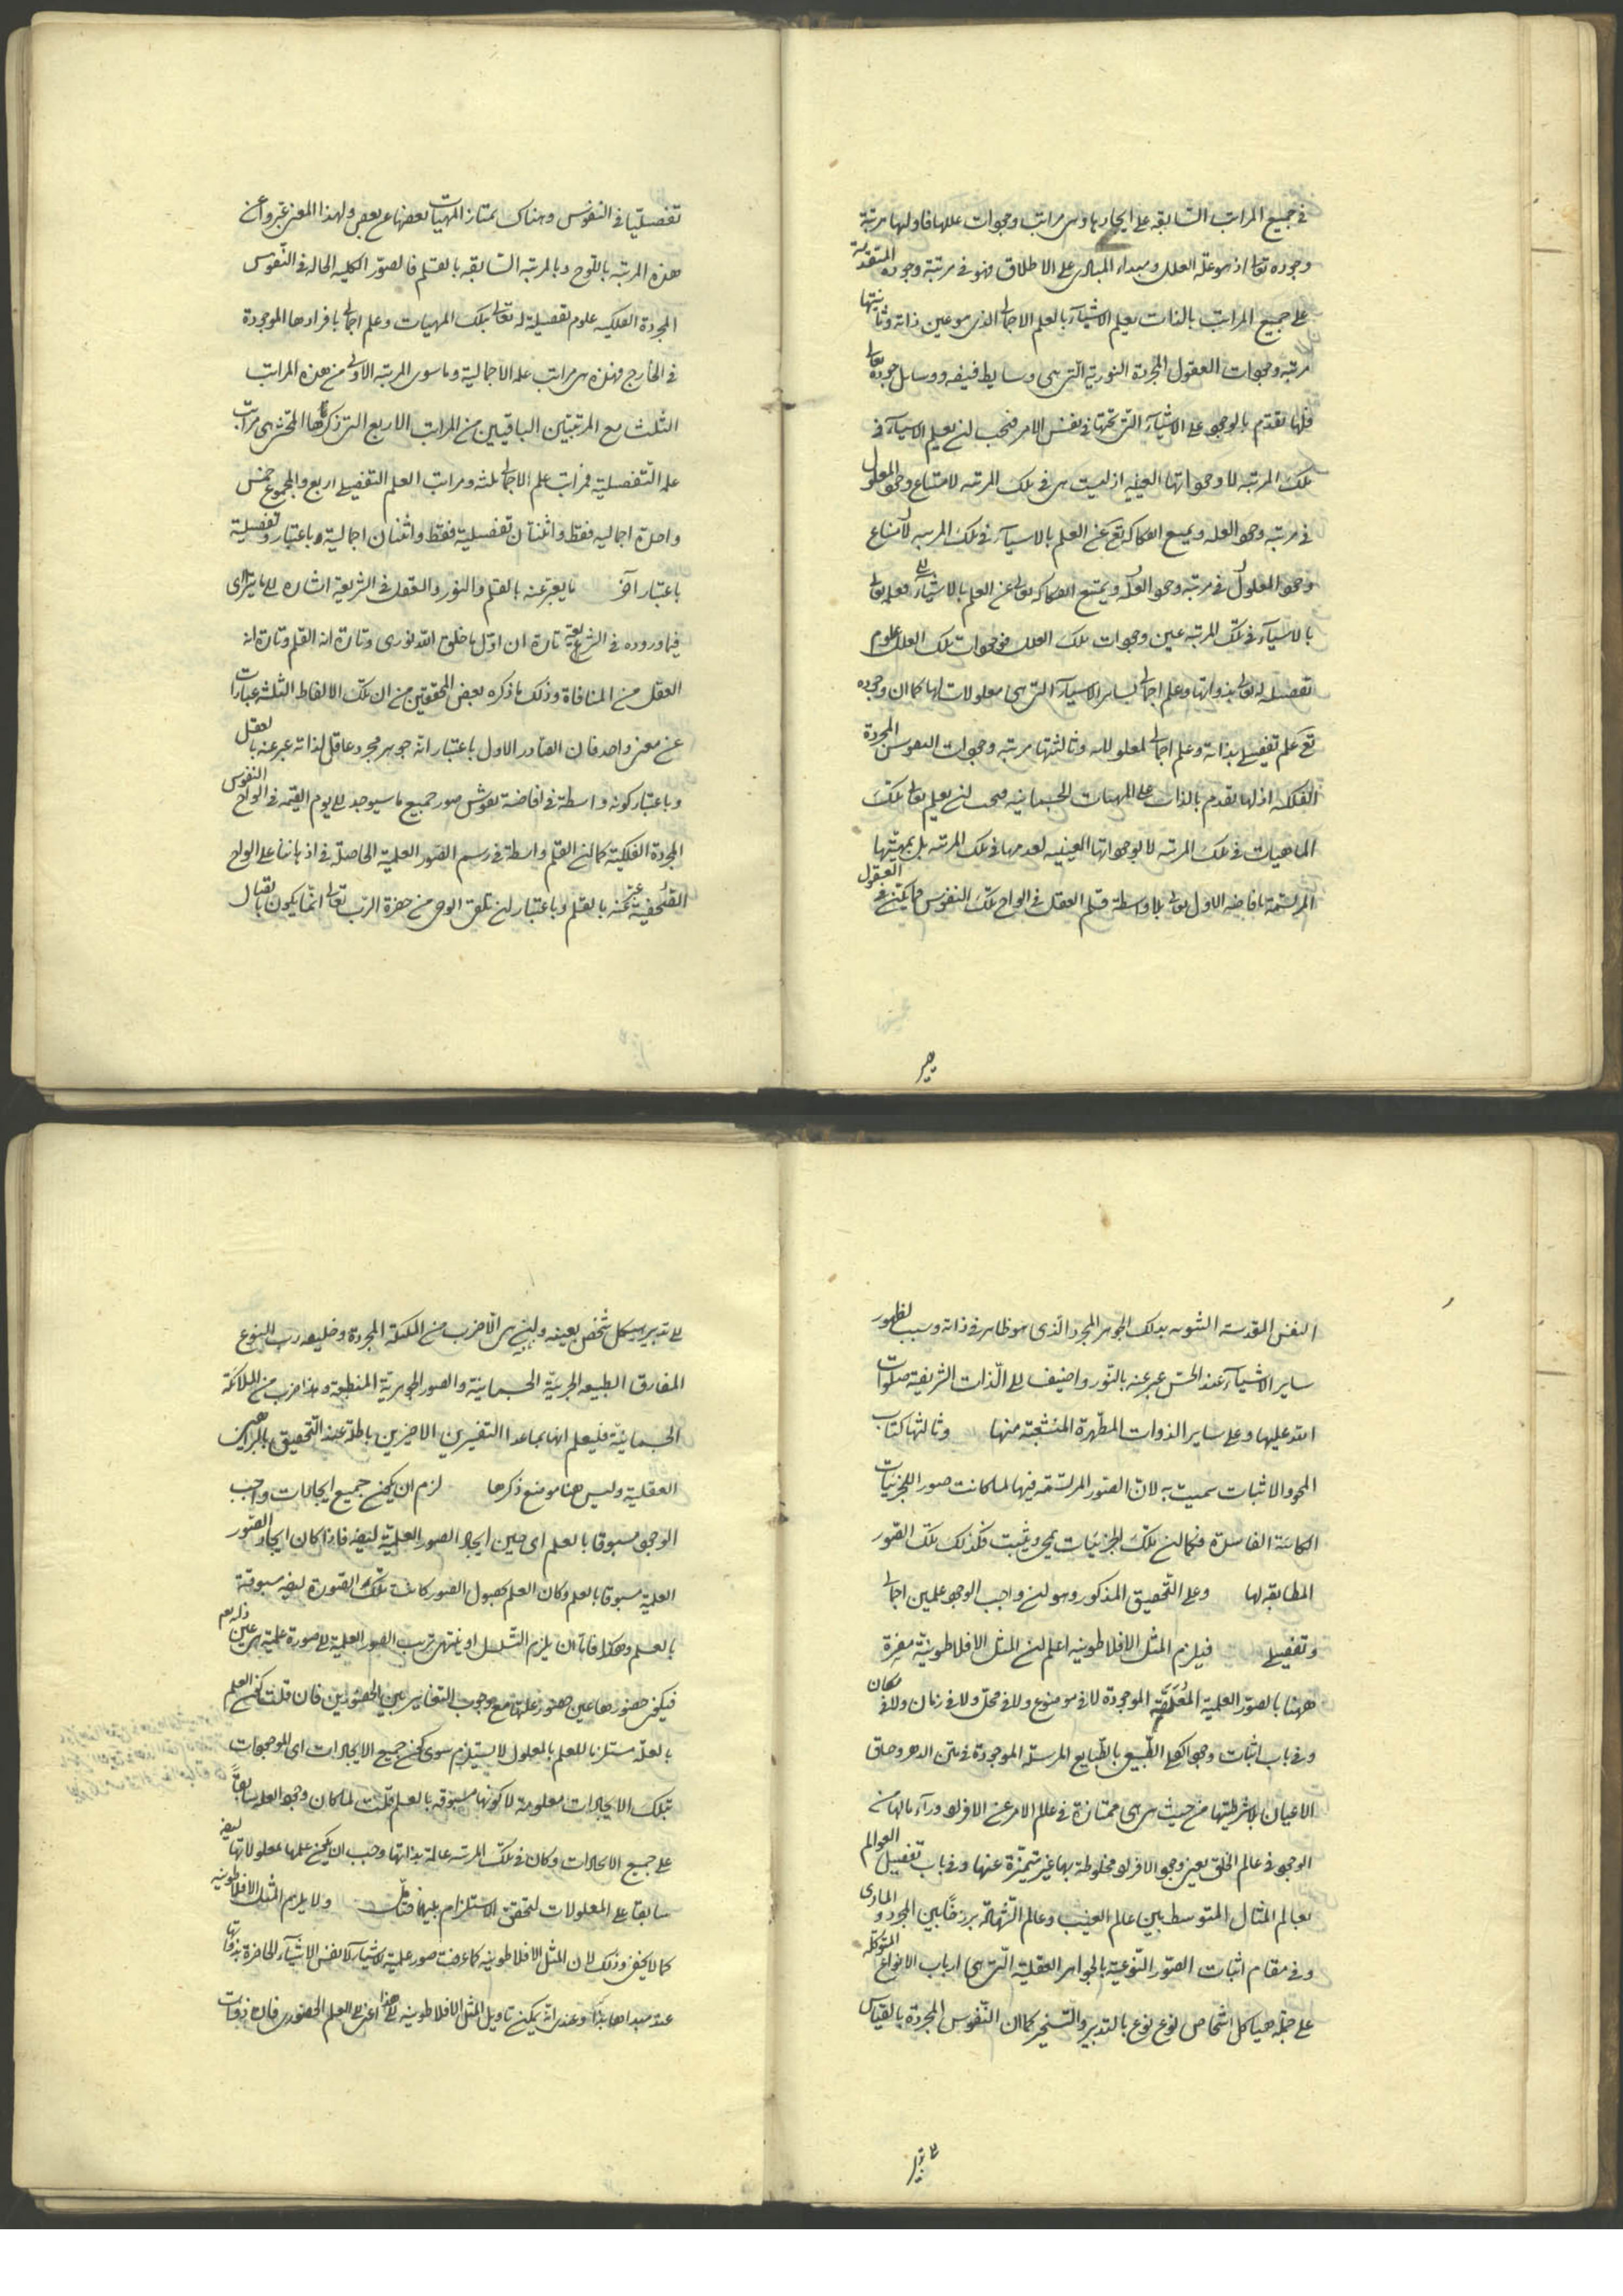 في جميع المراتب السابقه على ايجادها وهي مراتب وجودات عللها فاولها مرتبة
وجوده تعالى اذ هو علة العلل ومبداء المبادى على الاطلاق فهو في مرتبة وجوده المتقدمة
على جميع المراتب بالذات يعلم الاشياء بالعلم الاجمالى الذى هو عين ذاته وثانيتها
مرتبه وجودات العقول المجردة النورية التى هى وسايط فيضه ووسايل جوده تعالى
فلها تقدم بالوجود على الاشياء التى تحتها في نفس الامر فيجب ان يعلم الاشياء في
تلك المرتبه لا وجوداتها العينيه اذ ليست هى في تلك المرتبه لامتناع وجود المعلول
في مرتبه وجود العله ويمتنع انفكاكه تع عن العلم بالاشياء في تلك المرتبه لامتناع
وجود المعلول في مرتبه وجود العلة ويمتنع انفكاكه تعالى عن العلم بالاشياء فعلمه تعالى
بالاشياء في تلك المرتبه عين وجودات تلك العلل فوجودات تلك العلل علوم
تفصيليه له تعالى بذواتها وعلم اجمالى بساير الاشياء التى هى معلولات لها كما ان وجوده
تع علم تفصيلى بذاته وعلم اجمالى لمعلولاته وثالثتها مرتبه وجودات النفوس المجردة
الفلكيه اذ لها تقدم بالذات على المهيات الجسمانيه فيجب ان يعلم تعالى تلك
الماهيات في تلك المرتبه لا بوجوداتها العينيه لعدمها في تلك المرتبه بل بمهيتها
المرتسمة بافاضه الاول تعالى بلا واسطة قلم العقل في الواح تلك النفوس العقول
تفصيليا في النفوس وهناك يمتاز المهيات بعضها عن بعض ولهذا المعنى عبروا عن
هذه المرتبه باللوح وبالمرتبه السابقه بالقلم فالصور الكليه الحاله في النفوس
المجردة الفلكيه علوم تفصيلية له تعالى بتلك المهيات وعلم اجمالى بافرادها الموجودة
في الخارج فهذه هى مراتب علمه الاجمالية وما سوى المرتبه الاولى من هذه المراتب
الثلث مع المرتبتين الباقيتين من المراتب الاربع التى ذكرها المحشى هى مراتب
علمه التفصيلية فمراتب علم الاجمالى ثلثه ومراتب العلم التفصيلى اربع والمجموع خمس
واحدة اجماليه فقط واثنتان تفصيلية فقط واثنتان اجمالية باعتبار وتفصيلية
باعتبار آخر ما يعبر عنه بالقلم والنور والعقل في الشريعة اشاره الى ما يترااى
فيما وروده في الشريعة تارة ان اول ما خلق الله نورى وتارة انه القلم وتارة انه
العقل من المنافاة وذلك ما ذكره بعض المحققين من ان تلك الالفاظ الثلثه عبارات
عن معنى واحد فان الصادر الاول باعتبار انه جوهر مجرد عاقل لذاته عبر عنه بالعقل
وباعتبار كونه واسطة في افاضة نقوش صور جميع ما سيوجد الى يوم القيمه في الواح النفوس
المجردة الفلكية كما ان القلم واسطة في رسم الصور العلمية الحاصلة في اذهاننا على الواح
الصحيفة عبر عنه بالقلم وباعتبار ان تلقى الوحى من حضرة الرب تعالى انما يكون باتصال
النفس المقدسة النبويه بذلك الجوهر المجرد الذى هو ظاهر في ذاته وسبب لظهور
ساير الاشياء عند الحس عبر عنه بالنور واضيف الى الذات الشريفة صلوات
الله عليها وعلى ساير الذوات المطهرة المنشعبة منها وثالثها كتاب
المحو والاثبات سميت به لان الصور المرتسمة فيها لما كانت صور الجزئيات
الكائنة الفاسدة فكما ان تلك الجزئيات يمحى ويثبت فكذلك تلك الصور
المطابقه لها وعلى التحقيق المذكور وهو ان واجب الوجود علمين اجمالى
وتفصيلى فيلزم المثل الافلاطونيه اعلم ان المثل الافلاطونية مفسرة
ههنا بالصور العلمية المعلقة الموجودة لا في موضوع ولا في محل ولا في زمان ولا في مكان
وفي باب اثبات وجود الكلى الطبيعى بالطبايع المرسلة الموجودة في متن الدهر وحاق
الاعيان بلا شرطيتها من حيث هى هى ممتازة في عالم الامر عن الافراد وراء مالها من
الوجود في عالم الخلق بعين وجود الافراد مخلوطة بها غير متميزة عنها وفي باب تفصيل العوالم
بعالم المثال المتوسط بين عالم الغيب وعالم الشهادة برزخا بين المجرد والمادى
وفي مقام اثبات الصور النوعية بالجواهر العقلية التى هى ارباب الانواع المتوكلة
على جملة هياكل اشخاص نوع نوع بالتدبير والتسخير كما ان النفوس المجردة بالقياس
الى تدبير هيكل شخص بعينه وان هى الا ضرب من الملئكة المجردة وخليفه رب النوع
المفارق الطبيعه الجرمية الجسمانية والصور الجوهرية المنطبعة وهذا ضرب من الملائكة
الجسمانية فليعلم انها بما عدا التفسيرين الاخيرين باطلة عند التحقيق بالبراهين
العقلية وليس هنا موضع ذكرها لزم ان يكون جميع ايجادات واجب
الوجود مسبوقا بالعلم اى حين ايجاد الصور العلمية ايضا فاذا كان ايجاد الصور
العلمية مسبوقا بالعلم وكان العلم بحصول الصور كانت تلك الصورة ايضا مسبوقة
بالعلم وهكذا فاما ان يلزم التسلسل او ينتهى ترتب الصور العلمية الى صورة علمية هى عين ذاته
فيكون حضورها عين حضور علتها مع وجوب التغاير بين الحضورين فان قلت كون العلم
بالعلة مستلزما للعلم بالمعلول لا يستلزم سوى كون جميع الايجادات اى الموجودات
بتلك الايجادات معلومة لا كونها مسبوقه بالعلم قلت لما كان وجود العلة سابقا
على جميع الايجادات وكان في تلك المرتبه عالمة بذاتها وجب ان يكون علمها بمعلولاتها ايضا
سابقا على المعلولات لتحقق الاستلزام بينهما فتأمل ولا يلزم المثل الافلاطونيه
كما لا يخفى وذلك لان المثل الافلاطونيه كما عرفت صور علمية للاشياء لا نفس الاشياء الحاضرة بذواتها
عند مبداها هذا وعندى انه يمكن تاويل المثل الافلاطونيه الى هذا اعنى الى العلم الحضورى فان ذوات